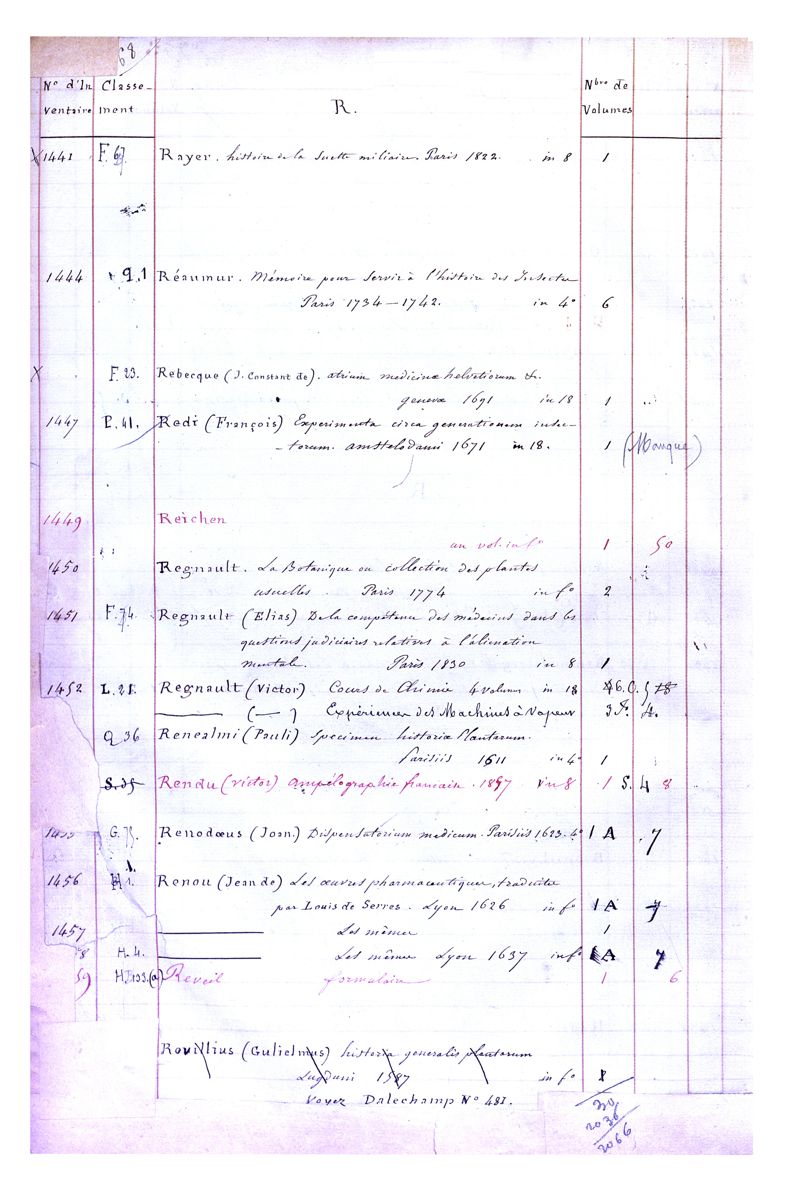 68
N° d'In Classe- Nbre de
ventaire ment R. Volumes
X 1441 F. 67 Rayer. histoire de la Suette miliaire. Paris 1822. in 8 1
1444 9.1 Réaumur. Mémoire pour servir à l'histoire des Insectes
Paris 1734 — 1742. in 4° 6
X F. 23. Rebecque (J. Constant de). atrium medicinæ helvetiorum &.
genevæ 1691 in 18 1
1447 P. 41. Redi (François) Experimenta circa generationem insec-
-torum. amstelodami 1671 in 18. 1 (Manque)
1449 Reichen
un vol. in f° 1 50
1450 Regnault. La Botanique ou collection des plantes
usuelles. Paris 1774 in f° 2
1451 F. 74. Regnault (Elias) De la compétence des médecins dans les
questions judiciaires relatives à l'aliénation
mentale. Paris 1830 in 8 1
1452 L. 21. Regnault (Victor). Cours de Chimie 4 volumes in 18
——— (—) Expériences des Machines à Vapeur
Q 36 Renealmi (Pauli) Specimen historiæ Plantarum.
Parisiis 1611 in 4° 1
Rendu (Victor) ampélographie française. 1857 in 8 1 S. 4 8
G. 75. Renodœus (Joan.) Dispensatorium medicum. Parisiis 1623. 4° 1 A 7
1456 Renou (Jean de) Les œuvres pharmaceutiques, traduites
par Louis de Serres. Lyon 1626 in f° 1 A 7
1457 ——— Les mêmes 1
8 H. 4. ——— Les mêmes Lyon 1637 in f° 1 A 7
59 H. 133. (a) Reveil formulaire 1 6
Rovillius (Gulielmus) historia generalis plantarum
Lugduni 1587 in f°
Voyez Dalechamp N° 481.
30
2036
2066